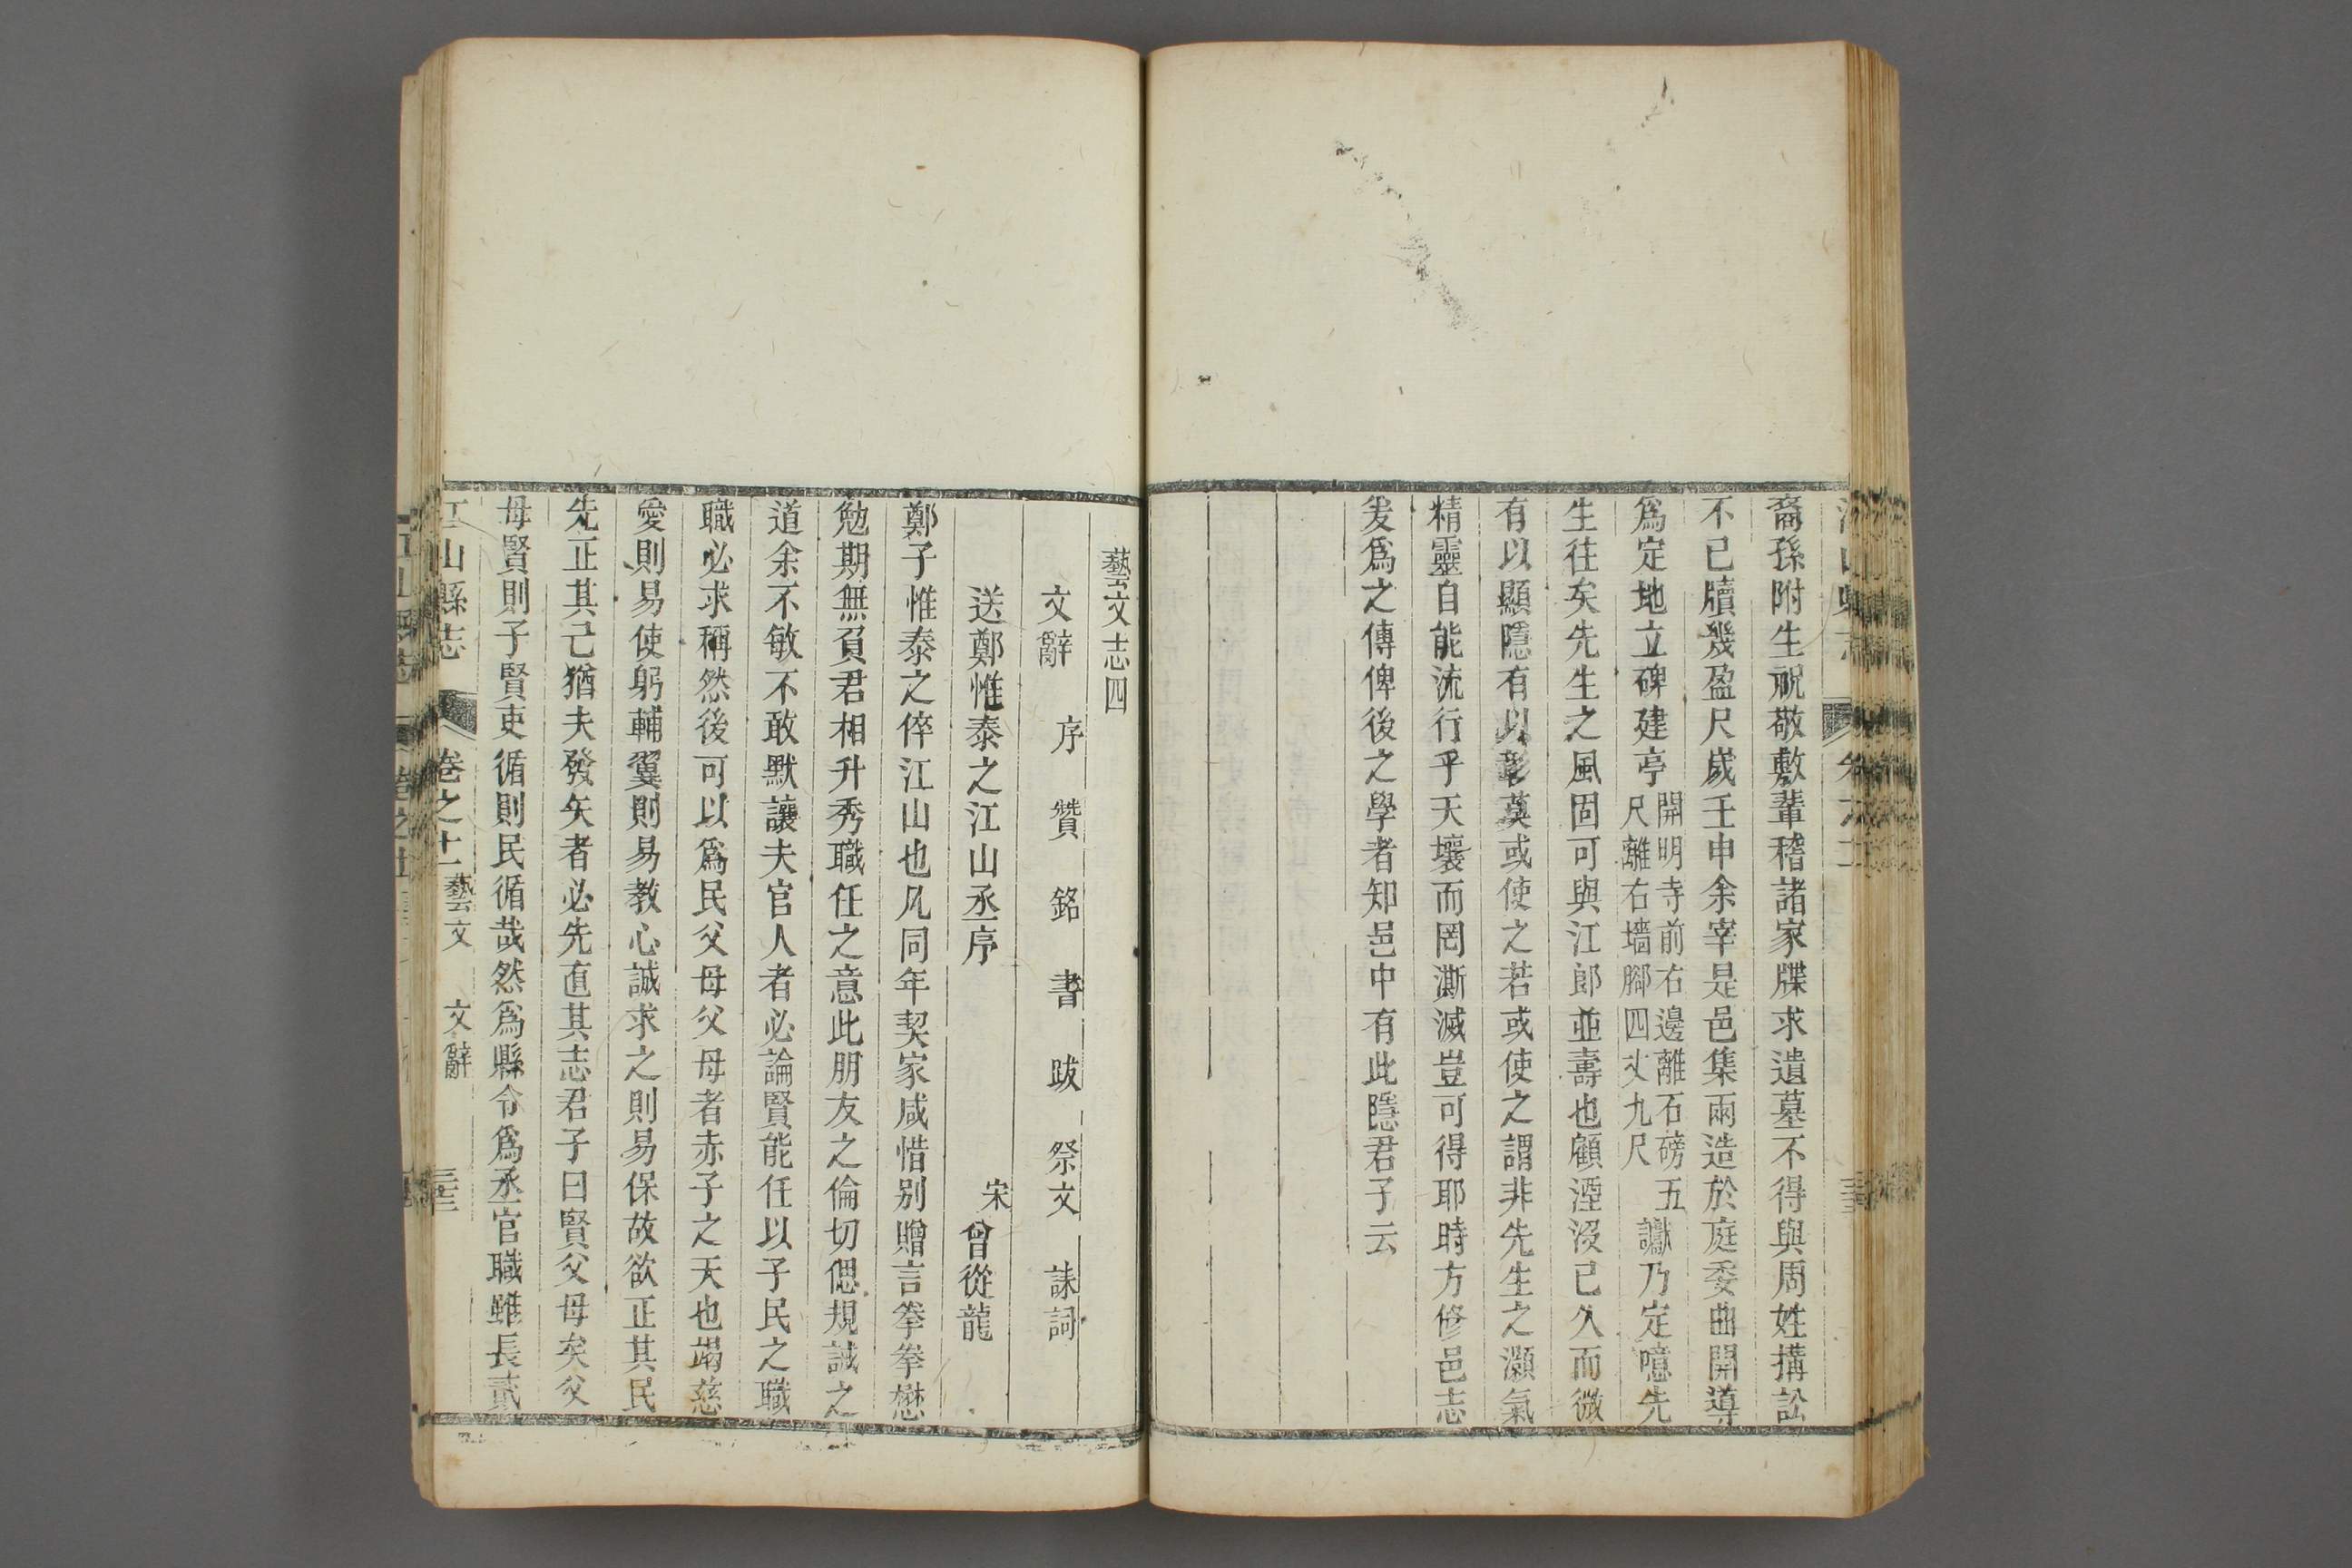 裔孫附生祝敬敷輩稽諸家牒求遺墓不得與周姓搆訟
不已牘幾盈尺歲壬申余宰是邑集兩造於庭委曲開導
為定地立碑建亭開明寺前右邊離石磅五
尺離右墻腳四丈九尺讞乃定噫先
生往矣先生之風固可與江郎並壽也顧湮沒已久而微
有以顯隱有以彰莫或使之若或使之謂非先生之灝氣
精靈自能流行乎天壤而罔澌滅豈可得耶時方修邑志
爰為之傳俾後之學者知邑中有此隱君子云
藝文志四
文辭 序 贊 銘 書 跋 祭文 誄詞
送鄭惟泰之江山丞序 宋 曾從龍
鄭子惟泰之倅江山也凡同年契家咸惜別贈言拳拳懋
勉期無負君相升秀職任之意此朋友之倫切偲規誠之
道余不敏不敢默讓夫官人者必論賢能任以子民之職
職必求稱然後可以為民父母父母者赤子之天也竭慈
愛則易使躬輔翼則易教心誠求之則易保故欲正其民
先正其己猶夫發矢者必先直其志君子曰賢父母矣父
母賢則子賢吏循則民循哉然為縣令為丞官職雖長貳
江山縣志 卷之十一 藝文 文辭